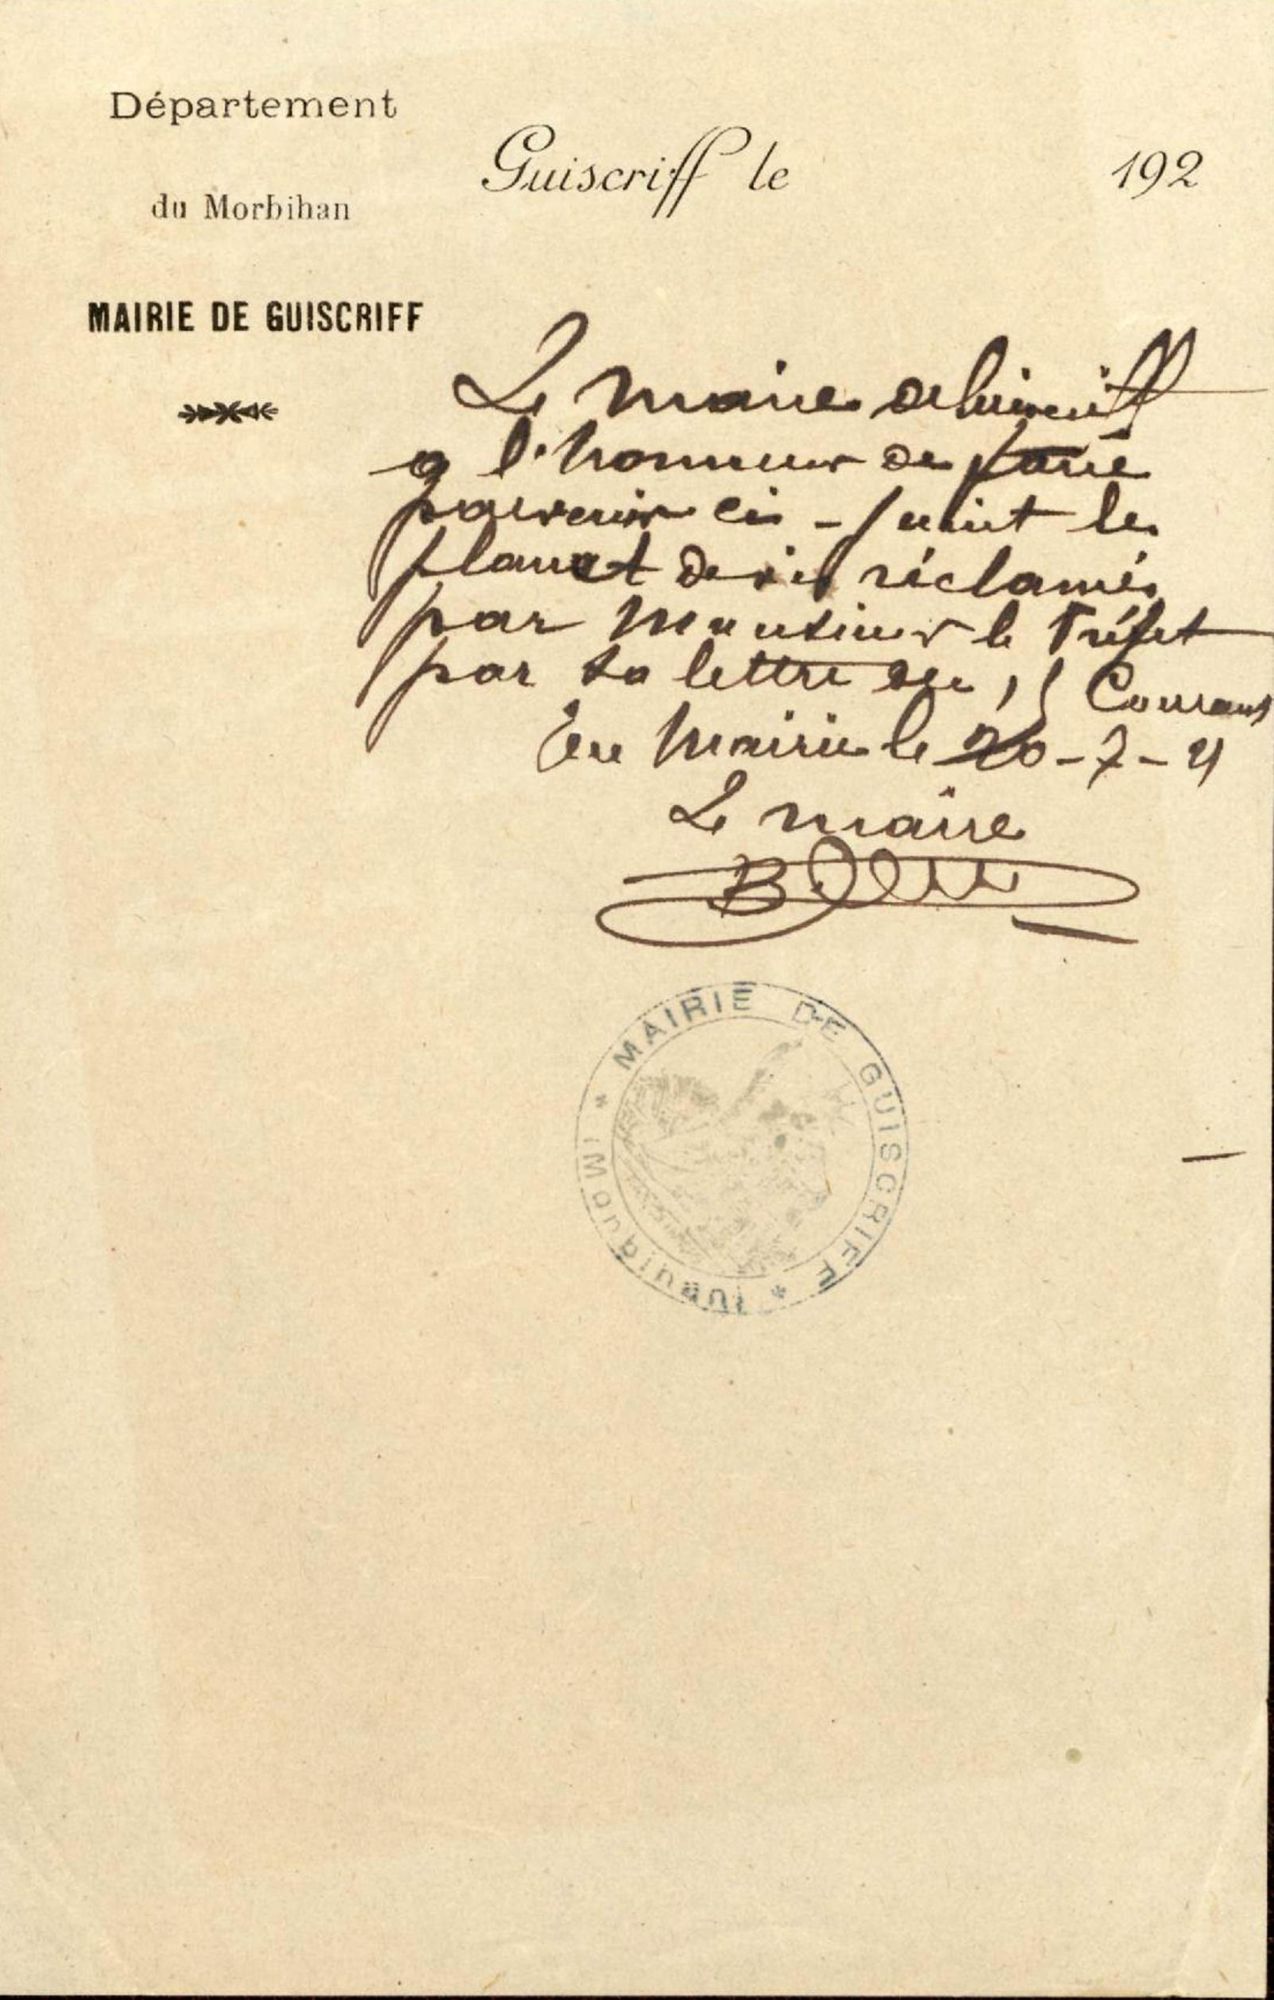 Département
du Morbihan
MAIRIE DE GUISCRIFF
Guiscriff le 192
Le maire de Guiscriff
a l'honneur de faire
parvenir ci-joint les
plan et devis réclamés
par Monsieur le Préfet
par sa lettre du Courant
En Mairie le 20-7-21
Le maire
MAIRIE DE GUISCRIFF * (Morbihan) *